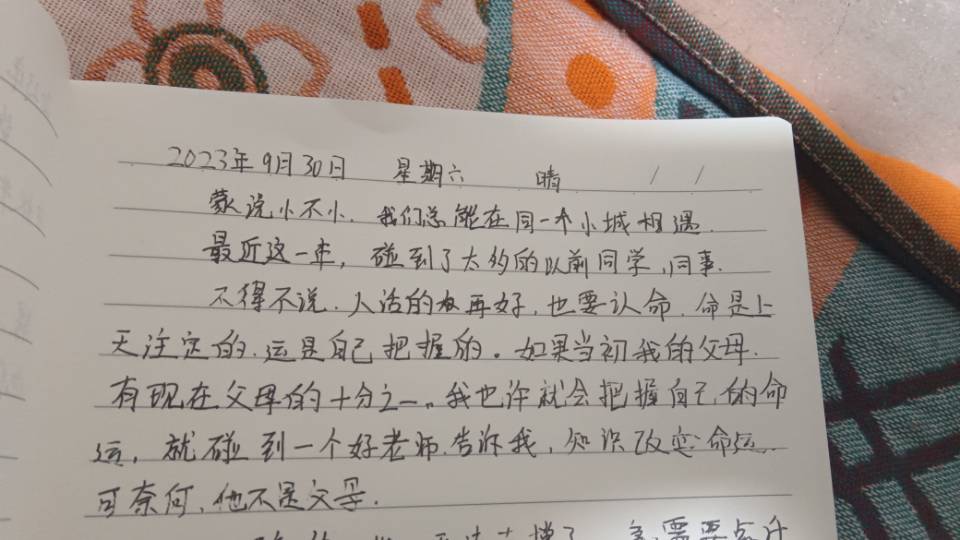 2023年9月30日 星期六 晴
说小不小、我们总能在同一个小城相遇.
最近这一年，碰到了太多的以前同学、同事.
不得不说、人活的再好、也要认命、命是上
天注定的、运是自己把握的。如果当初我的父母.
有现在父母的十分之一。我也许就会把握自己的命
运，就碰到一个好老师、告诉我，知识改变命运.
可奈何、他不是父母.
需要